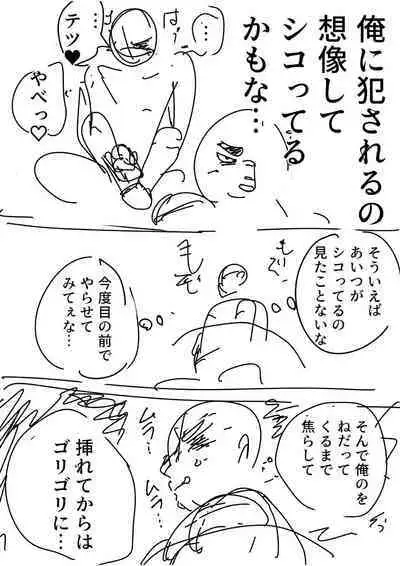 俺に犯されるの
想像して
シコってる
かもな…
…っ
はぁっ…
テツ♥
やべっ♡
そういえば
あいつが
シコってるの
見たことないな
もぞ
今度目の前で
やらせて
みてぇな…
そんで俺のを
ねだって
くるまで
焦らして
ムラ…
ムラ…
挿れてからは
ゴリゴリに…